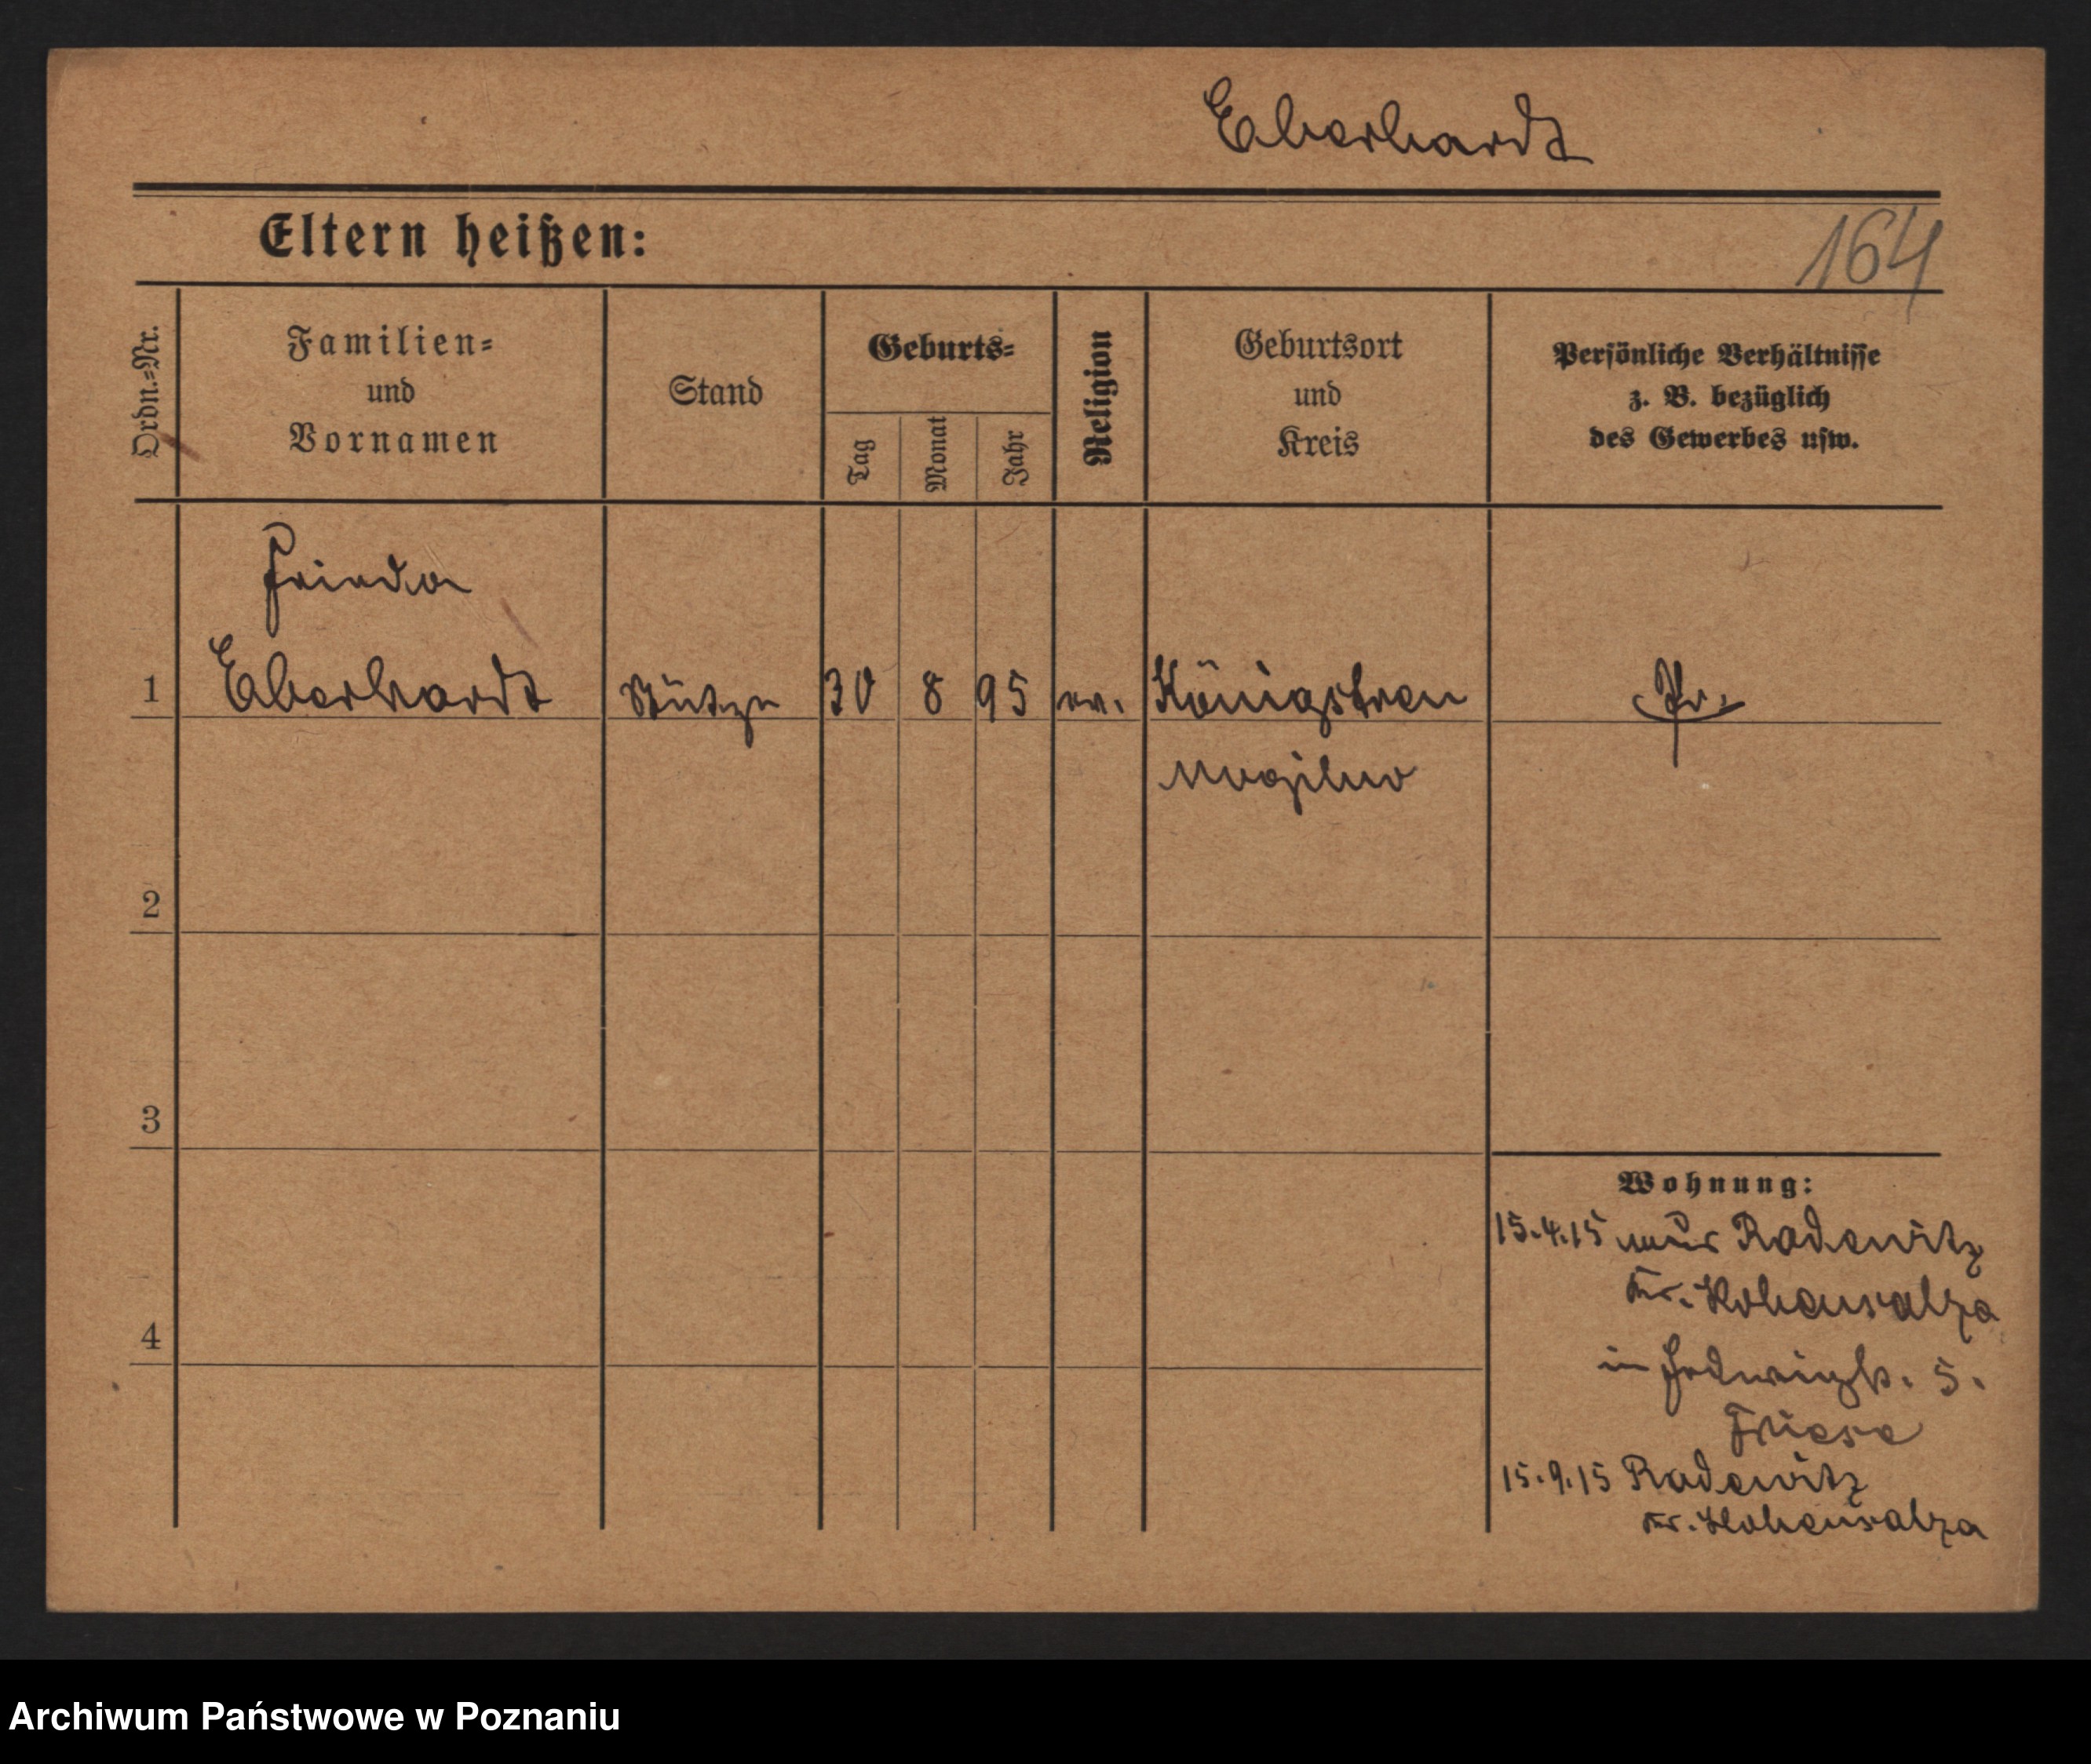 Eberhardt
Eltern heißen:
164
Ordn.=Nr.
Familien=
und
Vornamen
Stand
Geburts=
Tag
Monat
Jahr
Religion
Geburtsort
und
Kreis
Persönliche Verhältnisse
z. B. bezüglich
des Gewerbes usw.
Frieda
1 Eberhardt Stütze 30 8 95 ev. Königstreu Pr.
Mogilno
2
3
4
Wohnung:
15.4.15 Radewitz
Kr. Hohensalza
in Hedwigstr. 5.
Friese
15.9.15 Radewitz
Kr. Hohensalza
Archiwum Państwowe w Poznaniu